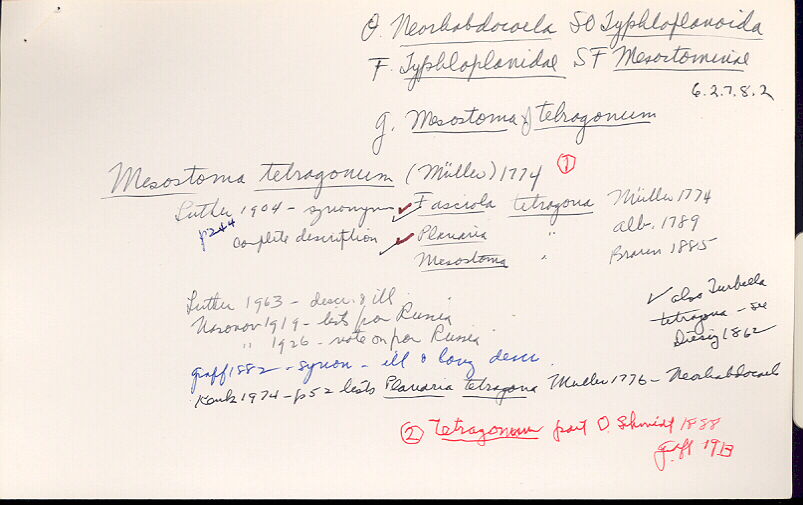 O. Neorhabdocoela SO Typhloplanoida
F. Typhloplanidae SF Mesostominae
6.2.7.8.2
g. Mesostoma tetragonum
Mesostoma tetragonum (Müller) 1774 ①
Luther 1904 - synonym ✓ Fasciola tetragona Müller 1774
p244 complete description ✓ Planaria " alb. 1789
Mesostoma " Braun 1885
Luther 1963 - descr. & ill.
✓ also Turbella
Nasonov 1919 - lists for Russia
tetragona - see
" 1926 - note on for Russia
Diesing 1862
Graff 1882 - synon - ill & long descr.
Kenk 1974 - p52 lists Planaria tetragona Muller 1776 - Neorhabdocoel
② Tetragonum part O. Schmidt 1888
Graff 1913